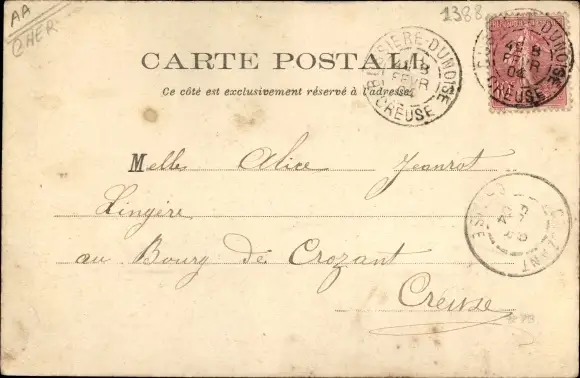 AA
CHER
1388
CARTE POSTALE
Ce côté est exclusivement réservé à l'adresse.
BUSSIÈRE-DUNOISE
FEVR
04
CREUSE
DUNOISE
FEVR
04
CREUSE
Melles Alice Jeanrot
Lingère
au Bourg de Crozant
Creuse